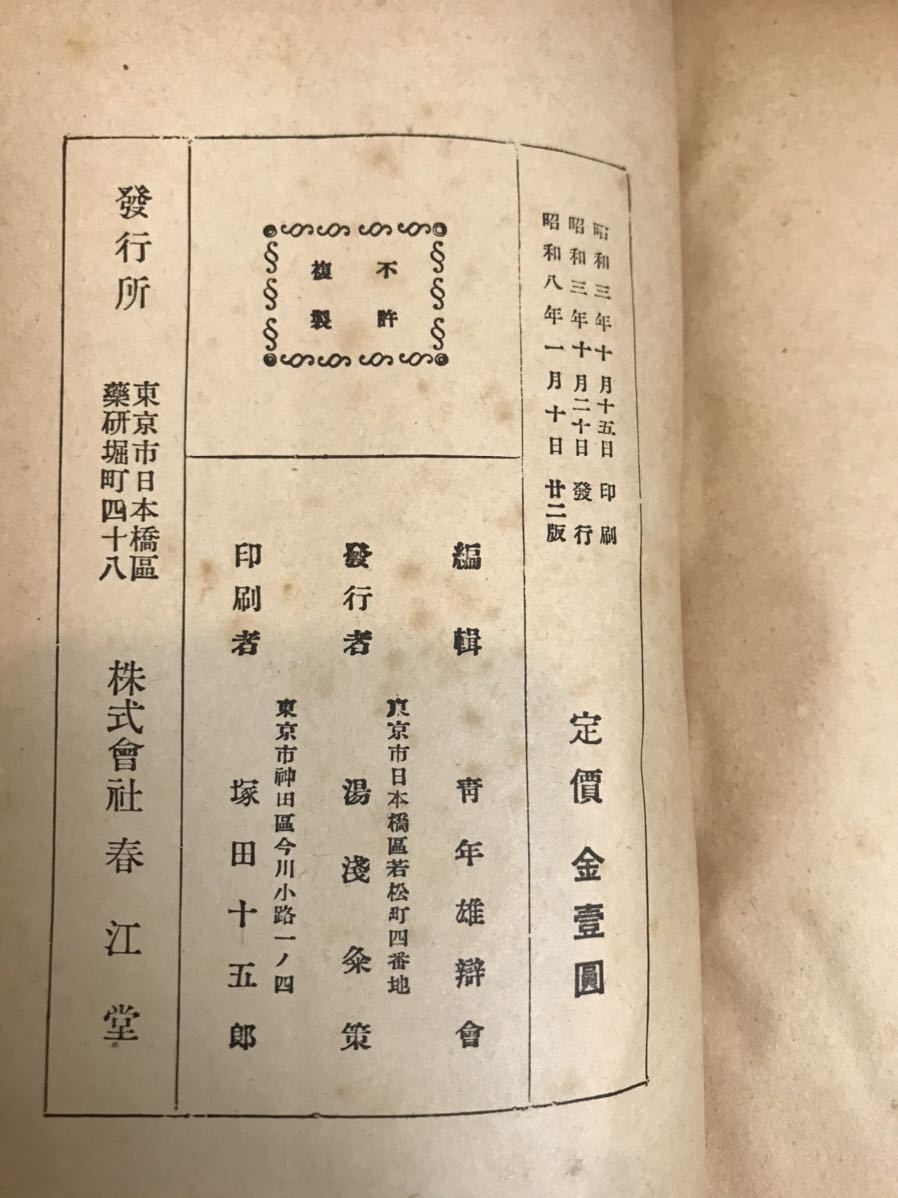 昭和三年十月十五日 印刷
昭和三年十月二十日 發行
昭和八年一月十日 廿二版
定價 金壹圓
不許
複製
編輯 靑年雄辯會
東京市日本橋區若松町四番地
發行者 湯淺粂策
東京市神田區今川小路一ノ四
印刷者 塚田十五郎
發行所
東京市日本橋區
藥硏堀町四十八
株式會社春江堂